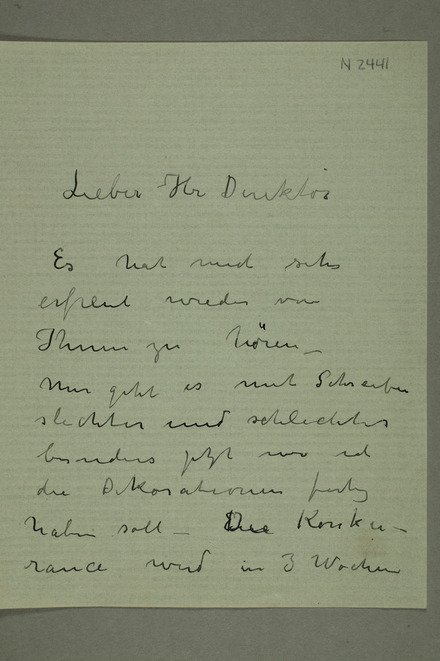 N 2441
Lieber Hr Direktör
Es hat mich sehr
erfreut wieder von
Ihnen zu hören –
Mir geht es mit Schreiben
slechter und schlechter
besonders jetzt wo ich
die Dekorationen fertig
haben soll – Die Konku-
rance wird in 3 Wochen